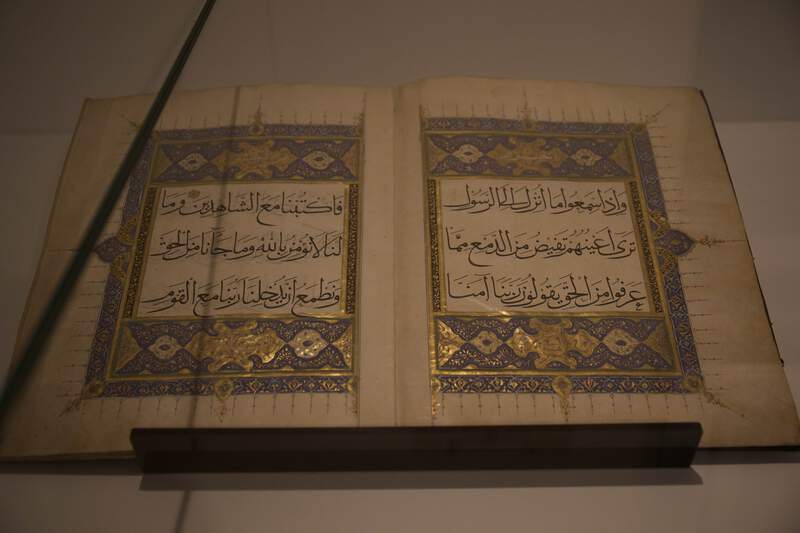 وَإِذَا سَمِعُوا مَا أُنْزِلَ إِلَى الرَّسُولِ
تَرَى أَعْيُنَهُمْ تَفِيضُ مِنَ الدَّمْعِ مِمَّا
عَرَفُوا مِنَ الْحَقِّ يَقُولُونَ رَبَّنَا آمَنَّا
فَاكْتُبْنَا مَعَ الشَّاهِدِينَ وَمَا
لَنَا لَا نُؤْمِنُ بِاللَّهِ وَمَا جَاءَنَا مِنَ الْحَقِّ
وَنَطْمَعُ أَنْ يُدْخِلَنَا رَبُّنَا مَعَ الْقَوْمِ